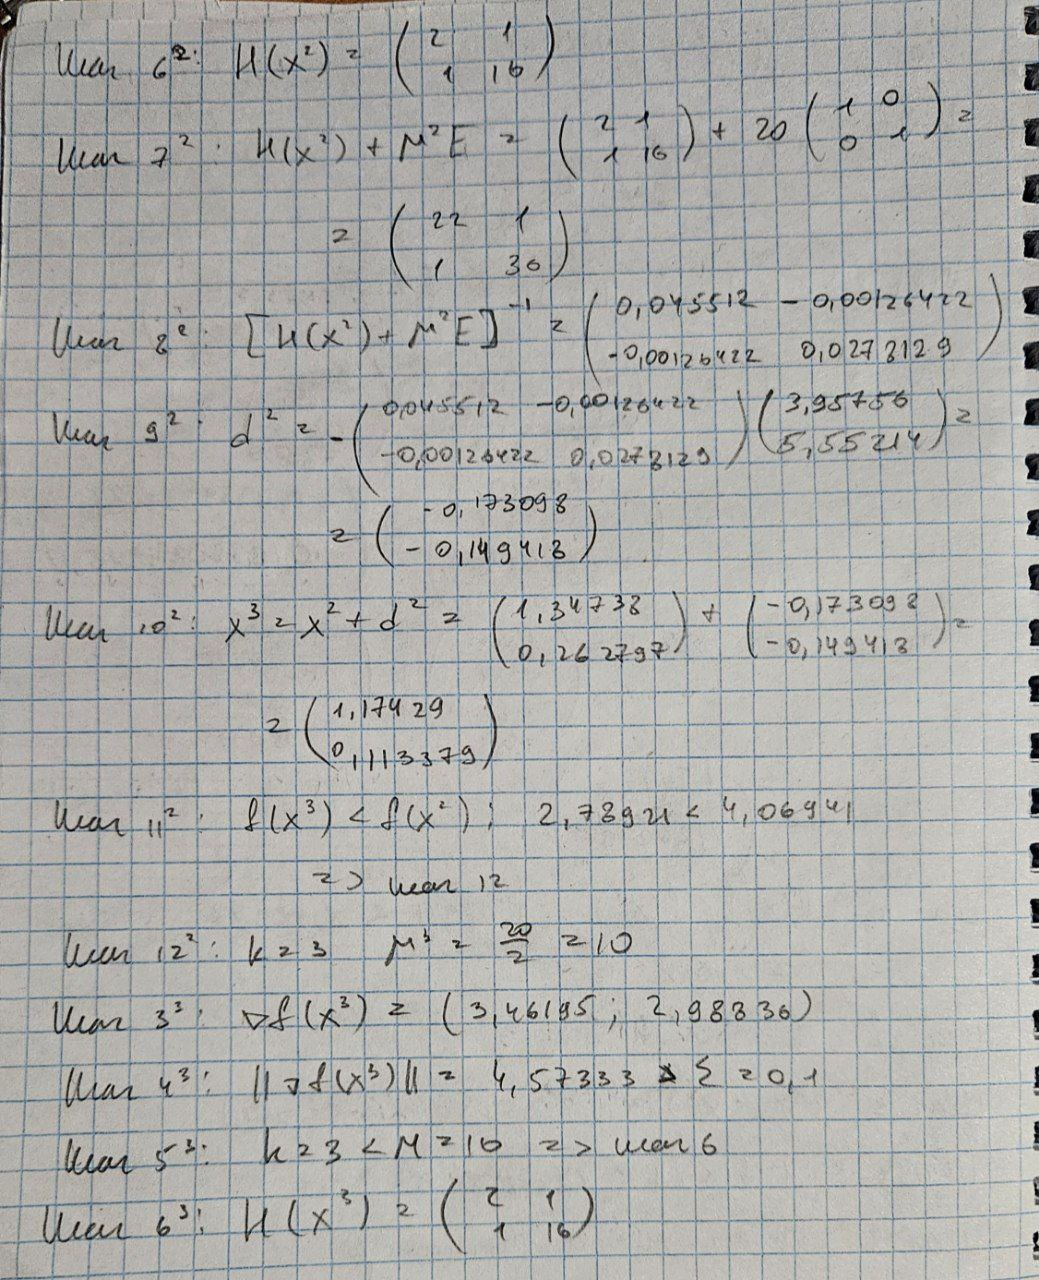 Шаг 6²: H(x²) = ( 2 1
1 16 )
Шаг 7²: H(x²) + μ²E = ( 2 1
1 16 ) + 20 ( 1 0
0 1 ) =
= ( 22 1
1 36 )
Шаг 8²: [H(x²) + μ²E]⁻¹ = ( 0,045512 -0,00126422
-0,00126422 0,0278129 )
Шаг 9²: d² = -( 0,045512 -0,00126422
-0,00126422 0,0278129 ) ( 3,95756
5,55214 ) =
= ( -0,173098
-0,149418 )
Шаг 10²: x³ = x² + d² = ( 1,34738
0,262797 ) + ( -0,173098
-0,149418 ) =
= ( 1,17429
0,113379 )
Шаг 11²: f(x³) < f(x²); 2,73921 < 4,06941
=> шаг 12
Шаг 12²: k = 3 μ³ = 20/2 = 10
Шаг 3³: ∇f(x³) = (3,46195; 2,98836)
Шаг 4³: ||∇f(x³)|| = 4,57333 > Σ = 0,1
Шаг 5³: k = 3 < M = 10 => шаг 6
Шаг 6³: H(x³) = ( 2 1
1 16 )